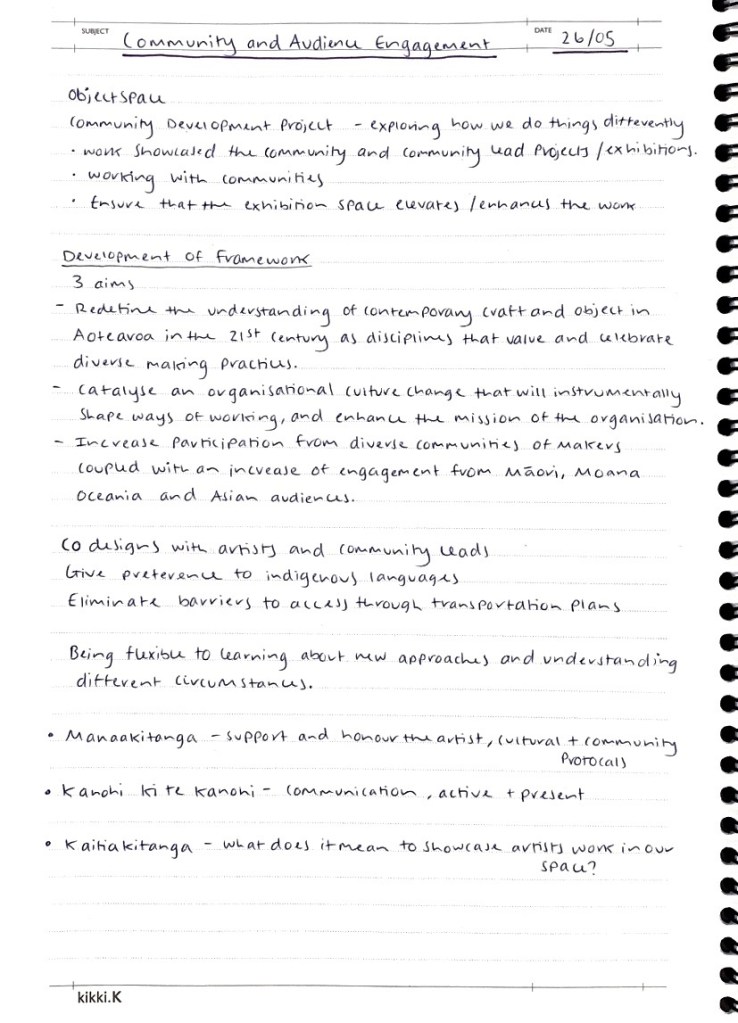 SUBJECT Community and Audience Engagement DATE 26/05
Objectspace
Community Development Project - exploring how we do things differently
· work showcased the community and community lead projects/exhibitions.
· working with communities
· Ensure that the exhibition space elevates/enhances the work
Development of Framework
3 aims
- Redefine the understanding of contemporary craft and object in
Aotearoa in the 21st century as disciplines that value and celebrate
diverse making practices.
- Catalyse an organisational culture change that will instrumentally
shape ways of working, and enhance the mission of the organisation.
- Increase participation from diverse communities of makers
coupled with an increase of engagement from Māori, Moana
Oceania and Asian audiences.
Co designs with artists and community leads
Give preference to indigenous languages
Eliminate barriers to access through transportation plans
Being flexible to learning about new approaches and understanding
different circumstances.
• Manaakitanga - support and honour the artist, cultural + community
protocals
• Kanohi ki te kanohi - communication, active + present
• Kaitiakitanga - what does it mean to showcase artists work in our
space?
kikki.K